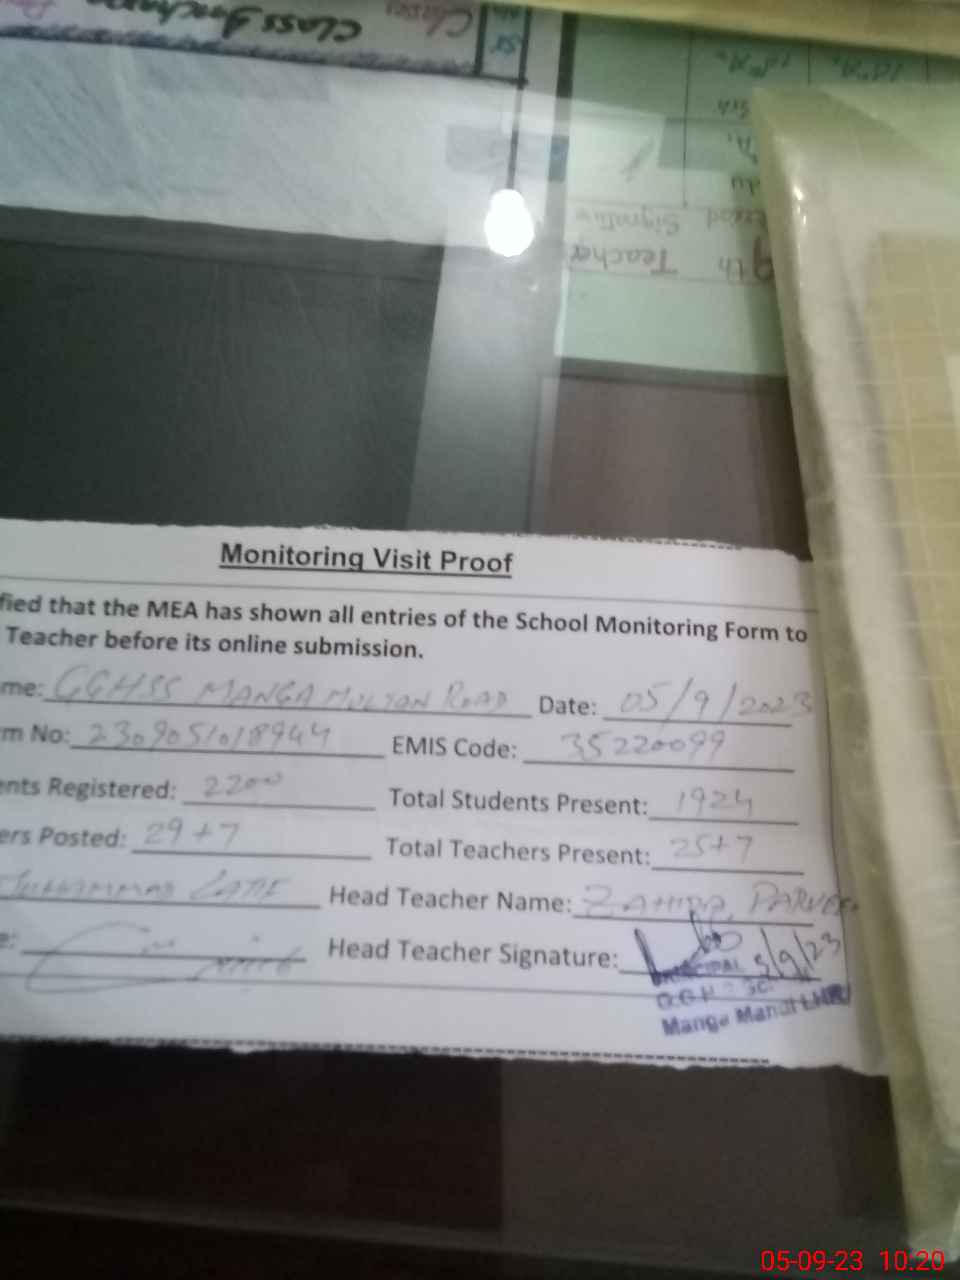 Class Incharge
Classes
Sr
Teacher
Signature
9th
Period
Monitoring Visit Proof
fied that the MEA has shown all entries of the School Monitoring Form to
Teacher before its online submission.
me: GGHSS MANGA MULTAN ROAD Date: 05/9/2023
m No: 2309051018944 EMIS Code: 35220099
ents Registered: 2200 Total Students Present: 1924
ers Posted: 29+7 Total Teachers Present: 25+7
MUHAMMAD LATIF Head Teacher Name: ZAHIDA PARVEEN
e: Head Teacher Signature: 5/9/23
PRINCIPAL
Manga Mandi LHR
05-09-23 10.20